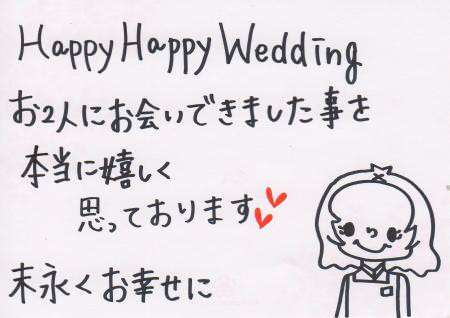 Happy Happy Wedding
お2人にお会いできました事を
本当に嬉しく
思っております
末永くお幸せに